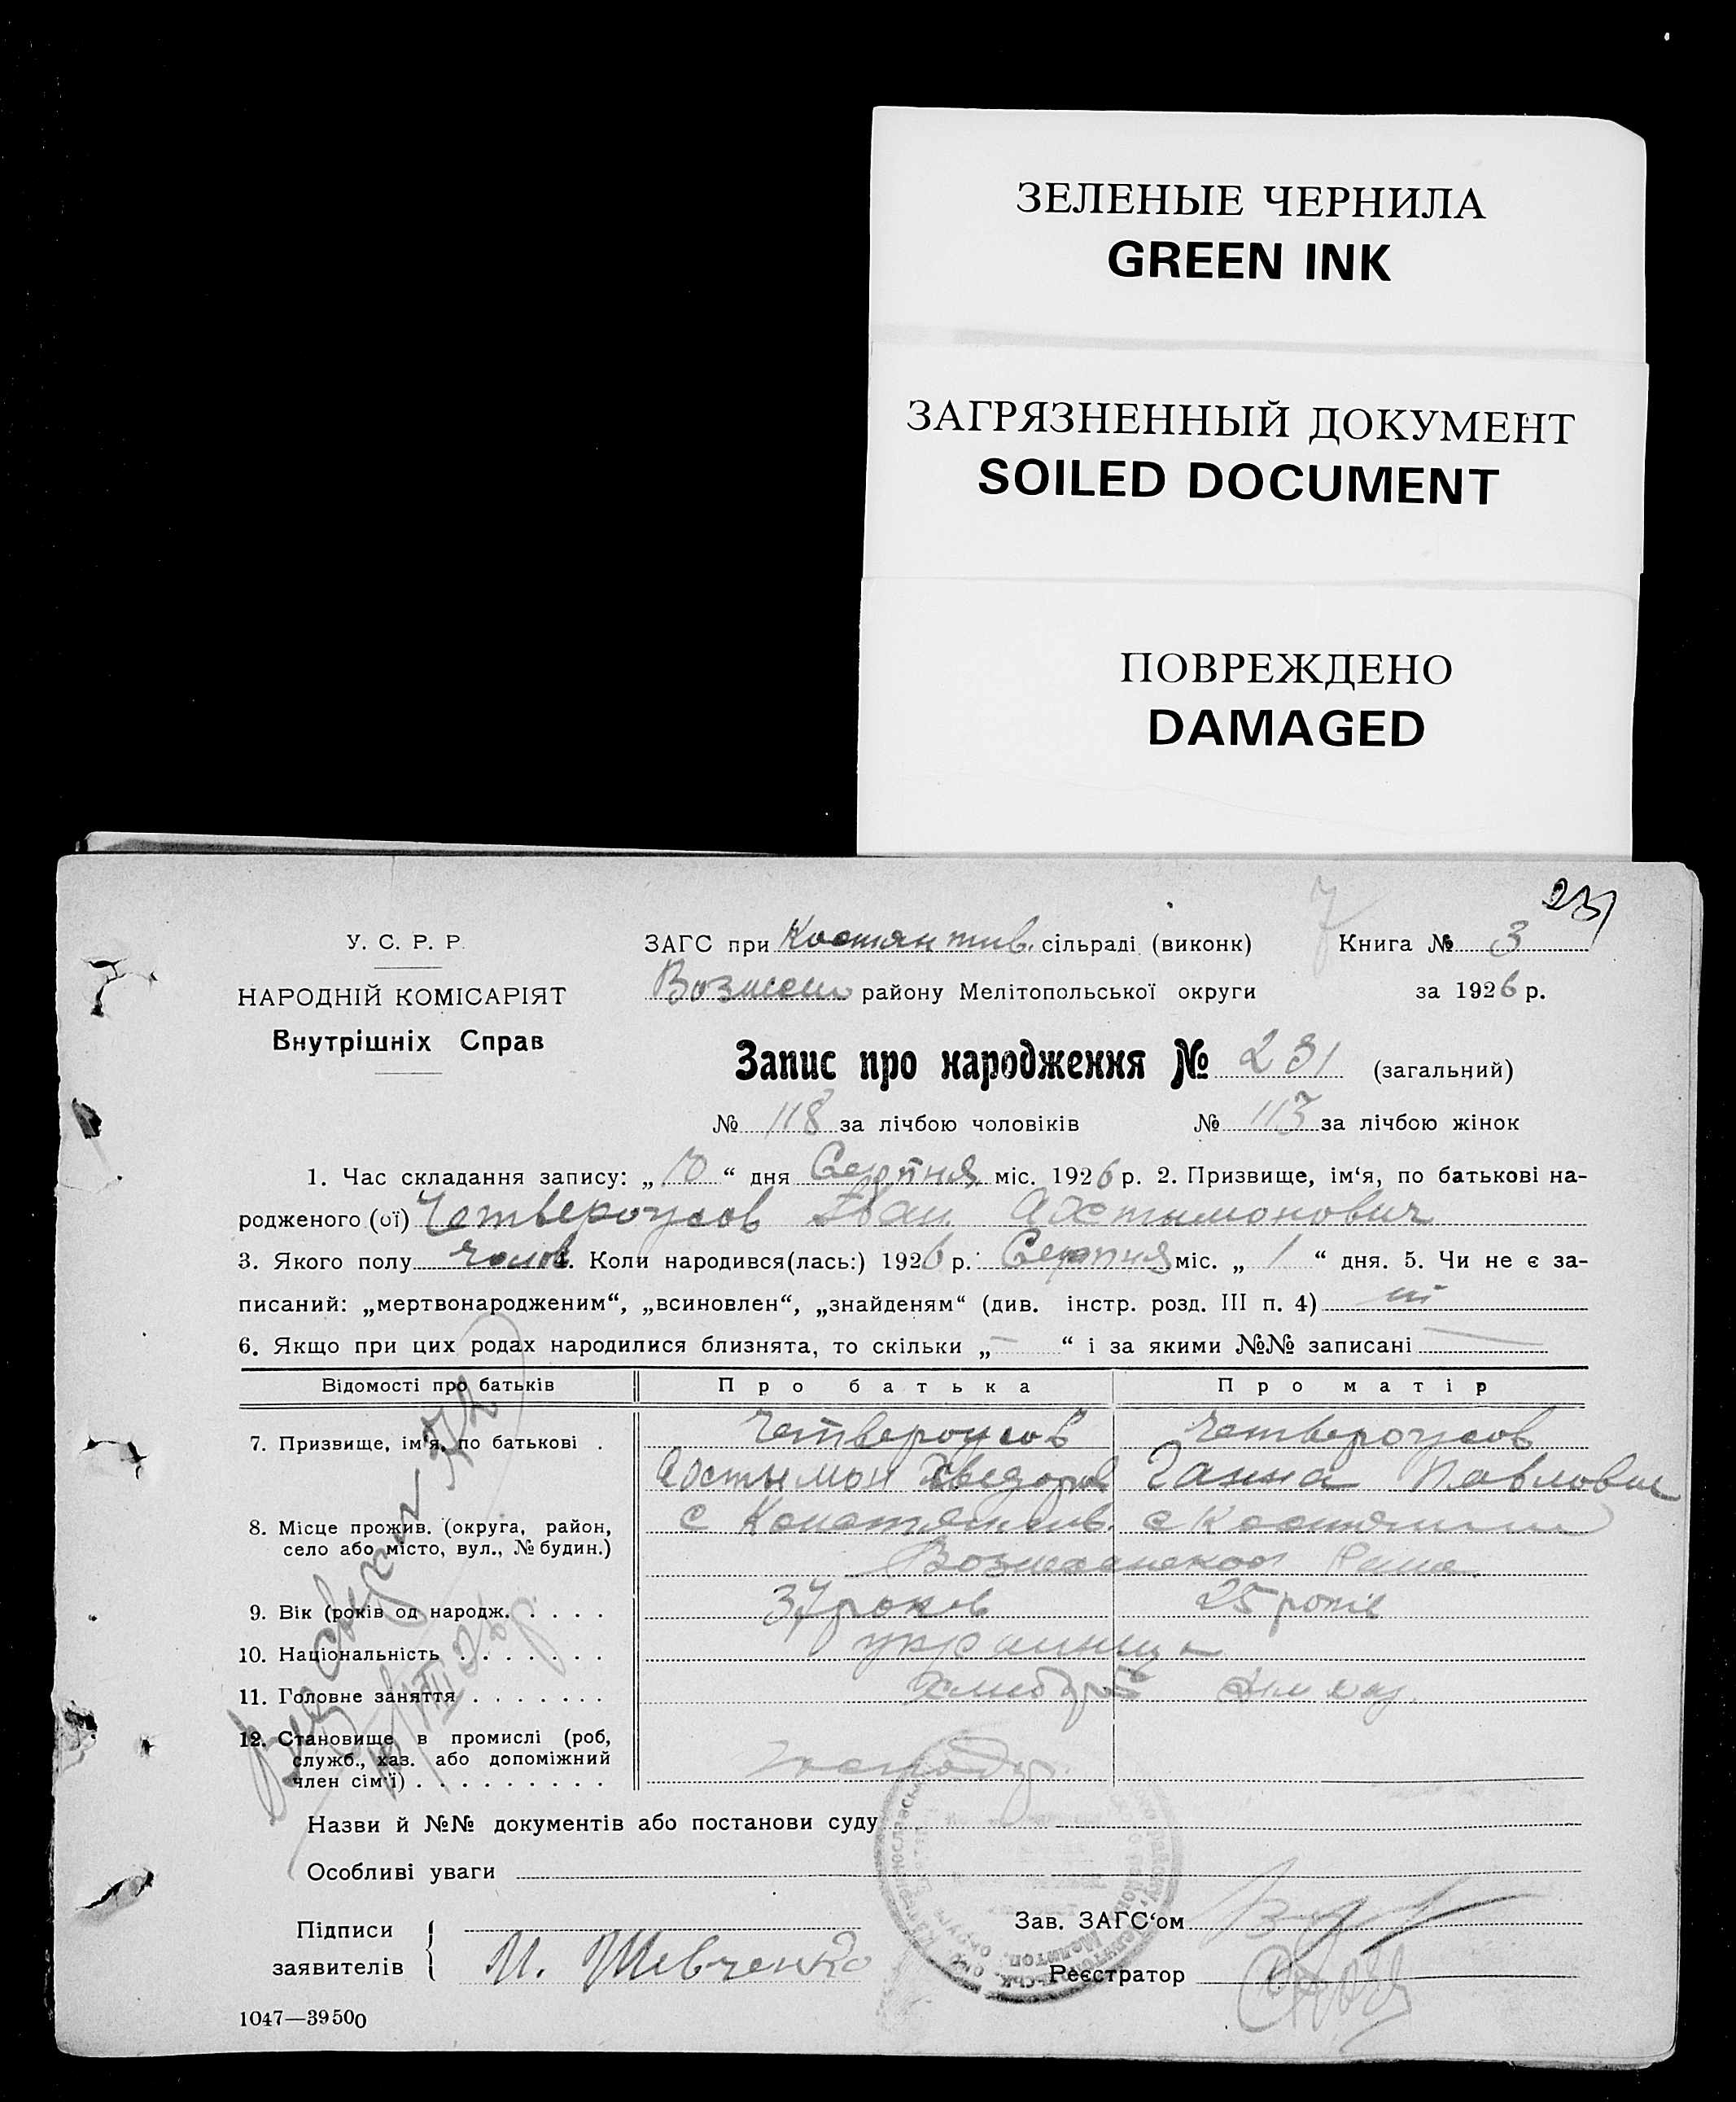 ЗЕЛЕНЫЕ ЧЕРНИЛА
GREEN INK
ЗАГРЯЗНЕННЫЙ ДОКУМЕНТ
SOILED DOCUMENT
ПОВРЕЖДЕНО
DAMAGED
231
7
У. С. Р. Р.
НАРОДНІЙ КОМІСАРІЯТ
Внутрішніх Справ
ЗАГС при Костянтив. сільраді (виконк) Книга № 3
району Мелітопольської округи за 1926 р.
Запис про народження № 231 (загальний)
№ 118 за лічбою чоловіків № 113 за лічбою жінок
1. Час складання запису: „10“ дня Серпня міс. 1926 р. 2. Призвище, ім‘я, по батькові на-
родженого (ої) Четвероусов Іван
3. Якого полу чолов. 4. Коли народився(лась:) 1926 р. Серпня міс. „1“ дня. 5. Чи не є за-
писаний: „мертвонародженим“, „всиновлен“, „знайденям“ (див. інстр. розд. III п. 4) ні
6. Якщо при цих родах народилися близнята, то скільки „—“ і за якими №№ записані —
Відомості про батьків Про батька Про матір
7. Призвище, ім‘я, по батькові . Четвероусов Четвероусов
Ганна Павловн
8. Місце прожив. (округа, район, село або місто, вул., № будин.) с с
9. Вік (років од народж. . . . . 37 роков 25 років
10. Національність . . . . . . . українці
11. Головне заняття . . . . . . .
12. Становище в промислі (роб, служб., хаз. або допоміжний член сім‘ї) . . . . . . . . . господ.
Назви й №№ документів або постанови суду
Особливі уваги
Підписи
заявителів
И. Шевченко
Зав. ЗАГС‘ом
Реєстратор
1047—39500